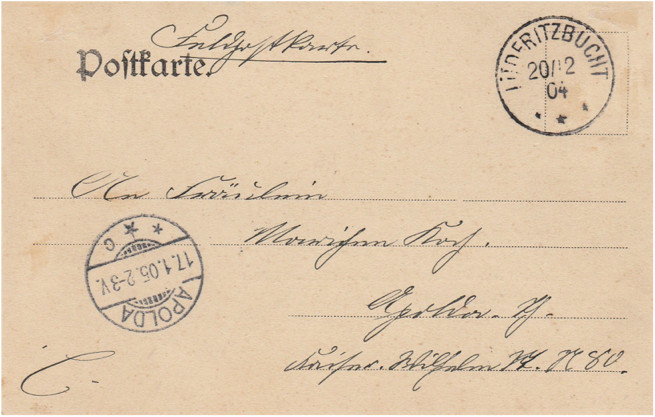 Feldpostkarte.
Postkarte.
LÜDERITZBUCHT
20/12
04
An Fräulein
Mariechen Koch.
Apolda. Th.
Kaiser. Wilhelm St. N 80.
APOLDA
17.1.05.2-3V.
C